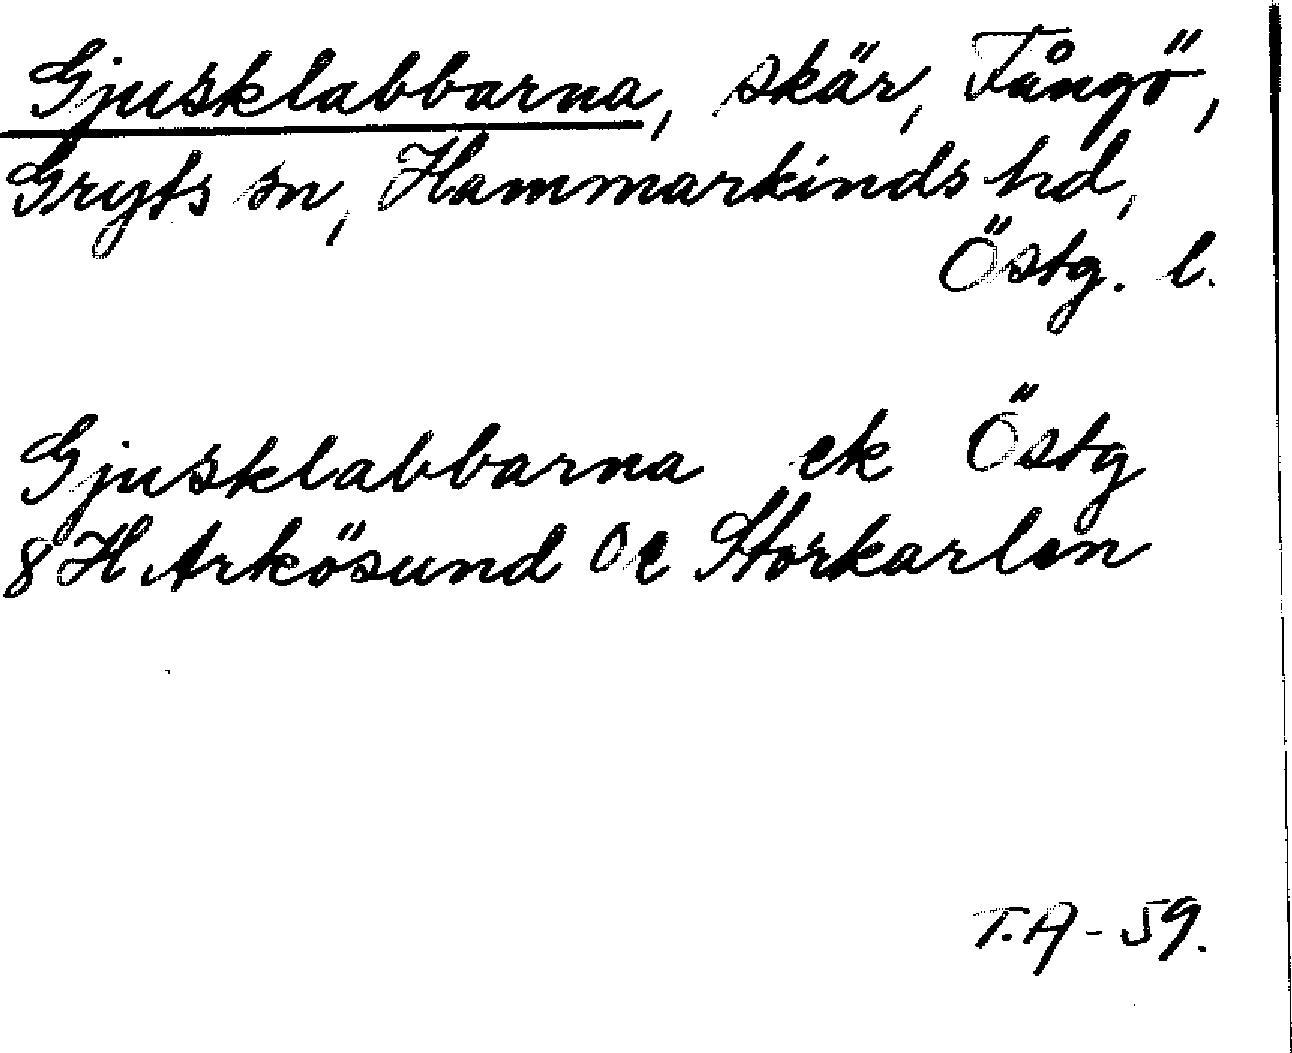 Gjusklabbarna, skär, Fångö,
Gryts sn, Hammarkinds hd,
Östg. l.
Gjusklabbarna ek Östg
8 H Arkösund Oe Storkarlen
T.A - 59.